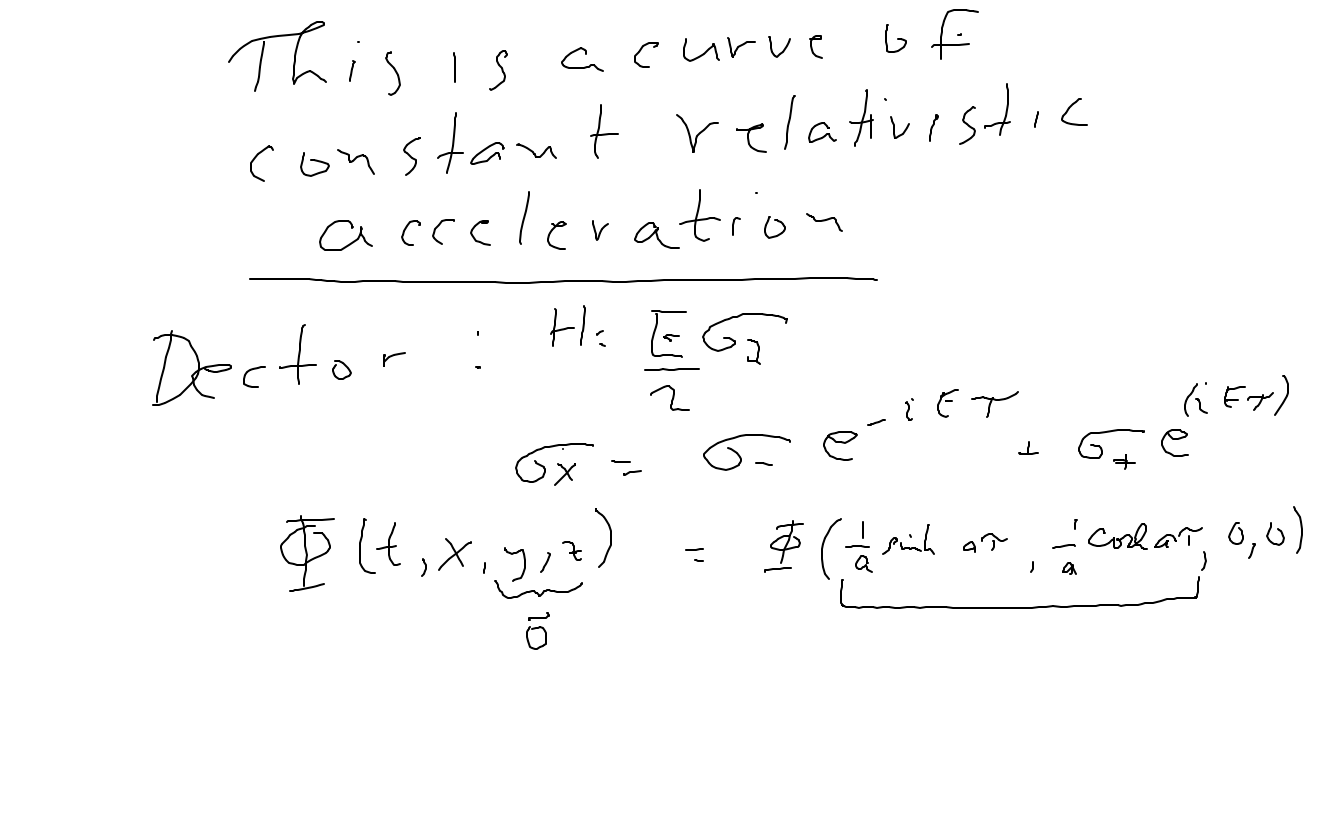 This is a curve of
constant relativistic
acceleration
Dector : H = E/2 σz
σx = σ- e^{-iEτ} + σ+ e^{(iEτ)}
Φ(t, x, y, z) = Φ(1/a sinh aτ, 1/a cosh aτ, 0, 0)
0⃗